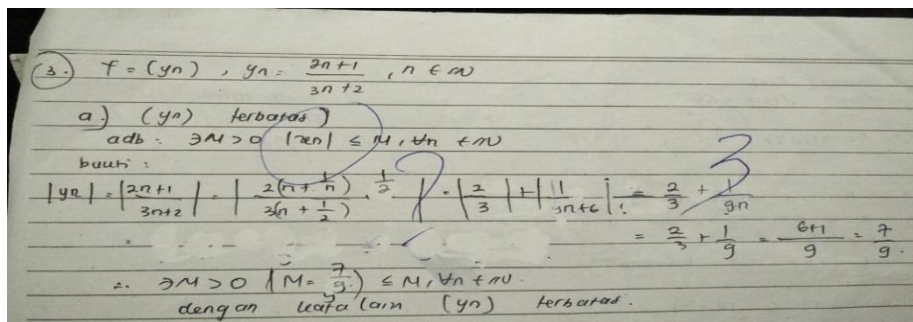 3. Y = (yn), yn = 2n+1 / 3n+2, n ∈ N
a.) (yn) terbatas
adb : ∃M>0 |xn| ≤ M, ∀n ∈ N
bukti :
|yn| = |2n+1 / 3n+2| = | 2(n + 1/n) / 3(n + 1/2) · 1/2 | = |2/3| + |1 / 9n+6| = 2/3 + 1/9n
= = 2/3 + 1/9 = 6+1 / 9 = 7/9.
∴ ∃M>0 (M = 7/9) ≤ M, ∀n ∈ N.
dengan kata lain (yn) terbatas.
? 3